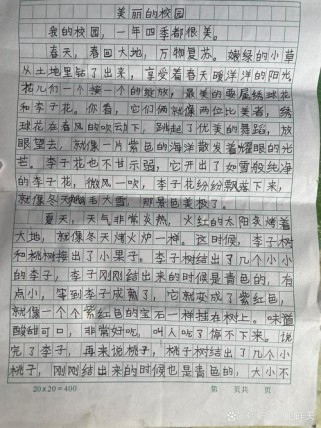 美丽的校园
我的校园，一年四季都很美。
春天，春回大地，万物复苏。嫩绿的小草
从土地里钻了出来，享受着春天暖洋洋的阳光，
花儿们一个接一个的绽放，最美的要属绣球花
和李子花。你看，它们俩就像两位比美者，绣
球花在春风的吹动下，跳起了优美的舞蹈，放
眼望去，就像一片紫色的海洋散发着耀眼的光
芒。李子花也不甘示弱，它开出了如雪般纯净
的李子花，微风一吹，李子花纷纷飘落下来，
就像冬天鹅毛大雪，那景色美极了。
夏天，天气非常炎热，火红的太阳炙烤着
大地，就像冬天烤火炉一样。这时候，李子树
和桃树接出了小果子。李子树结出了几个小小
的李子，李子刚刚结出来的时候是青色的，有
点小，等到李子成熟了，它就变成了紫红色，
就像一个个紫红色的宝石一样挂在树上。味道
酸甜可口，非常好吃，叫人吃了停不下来。说
完了李子，再来说桃子，桃子树结出了几个小
桃子，刚刚结出来的时候也是青色的，大小不
20×20=400
第 页共 页